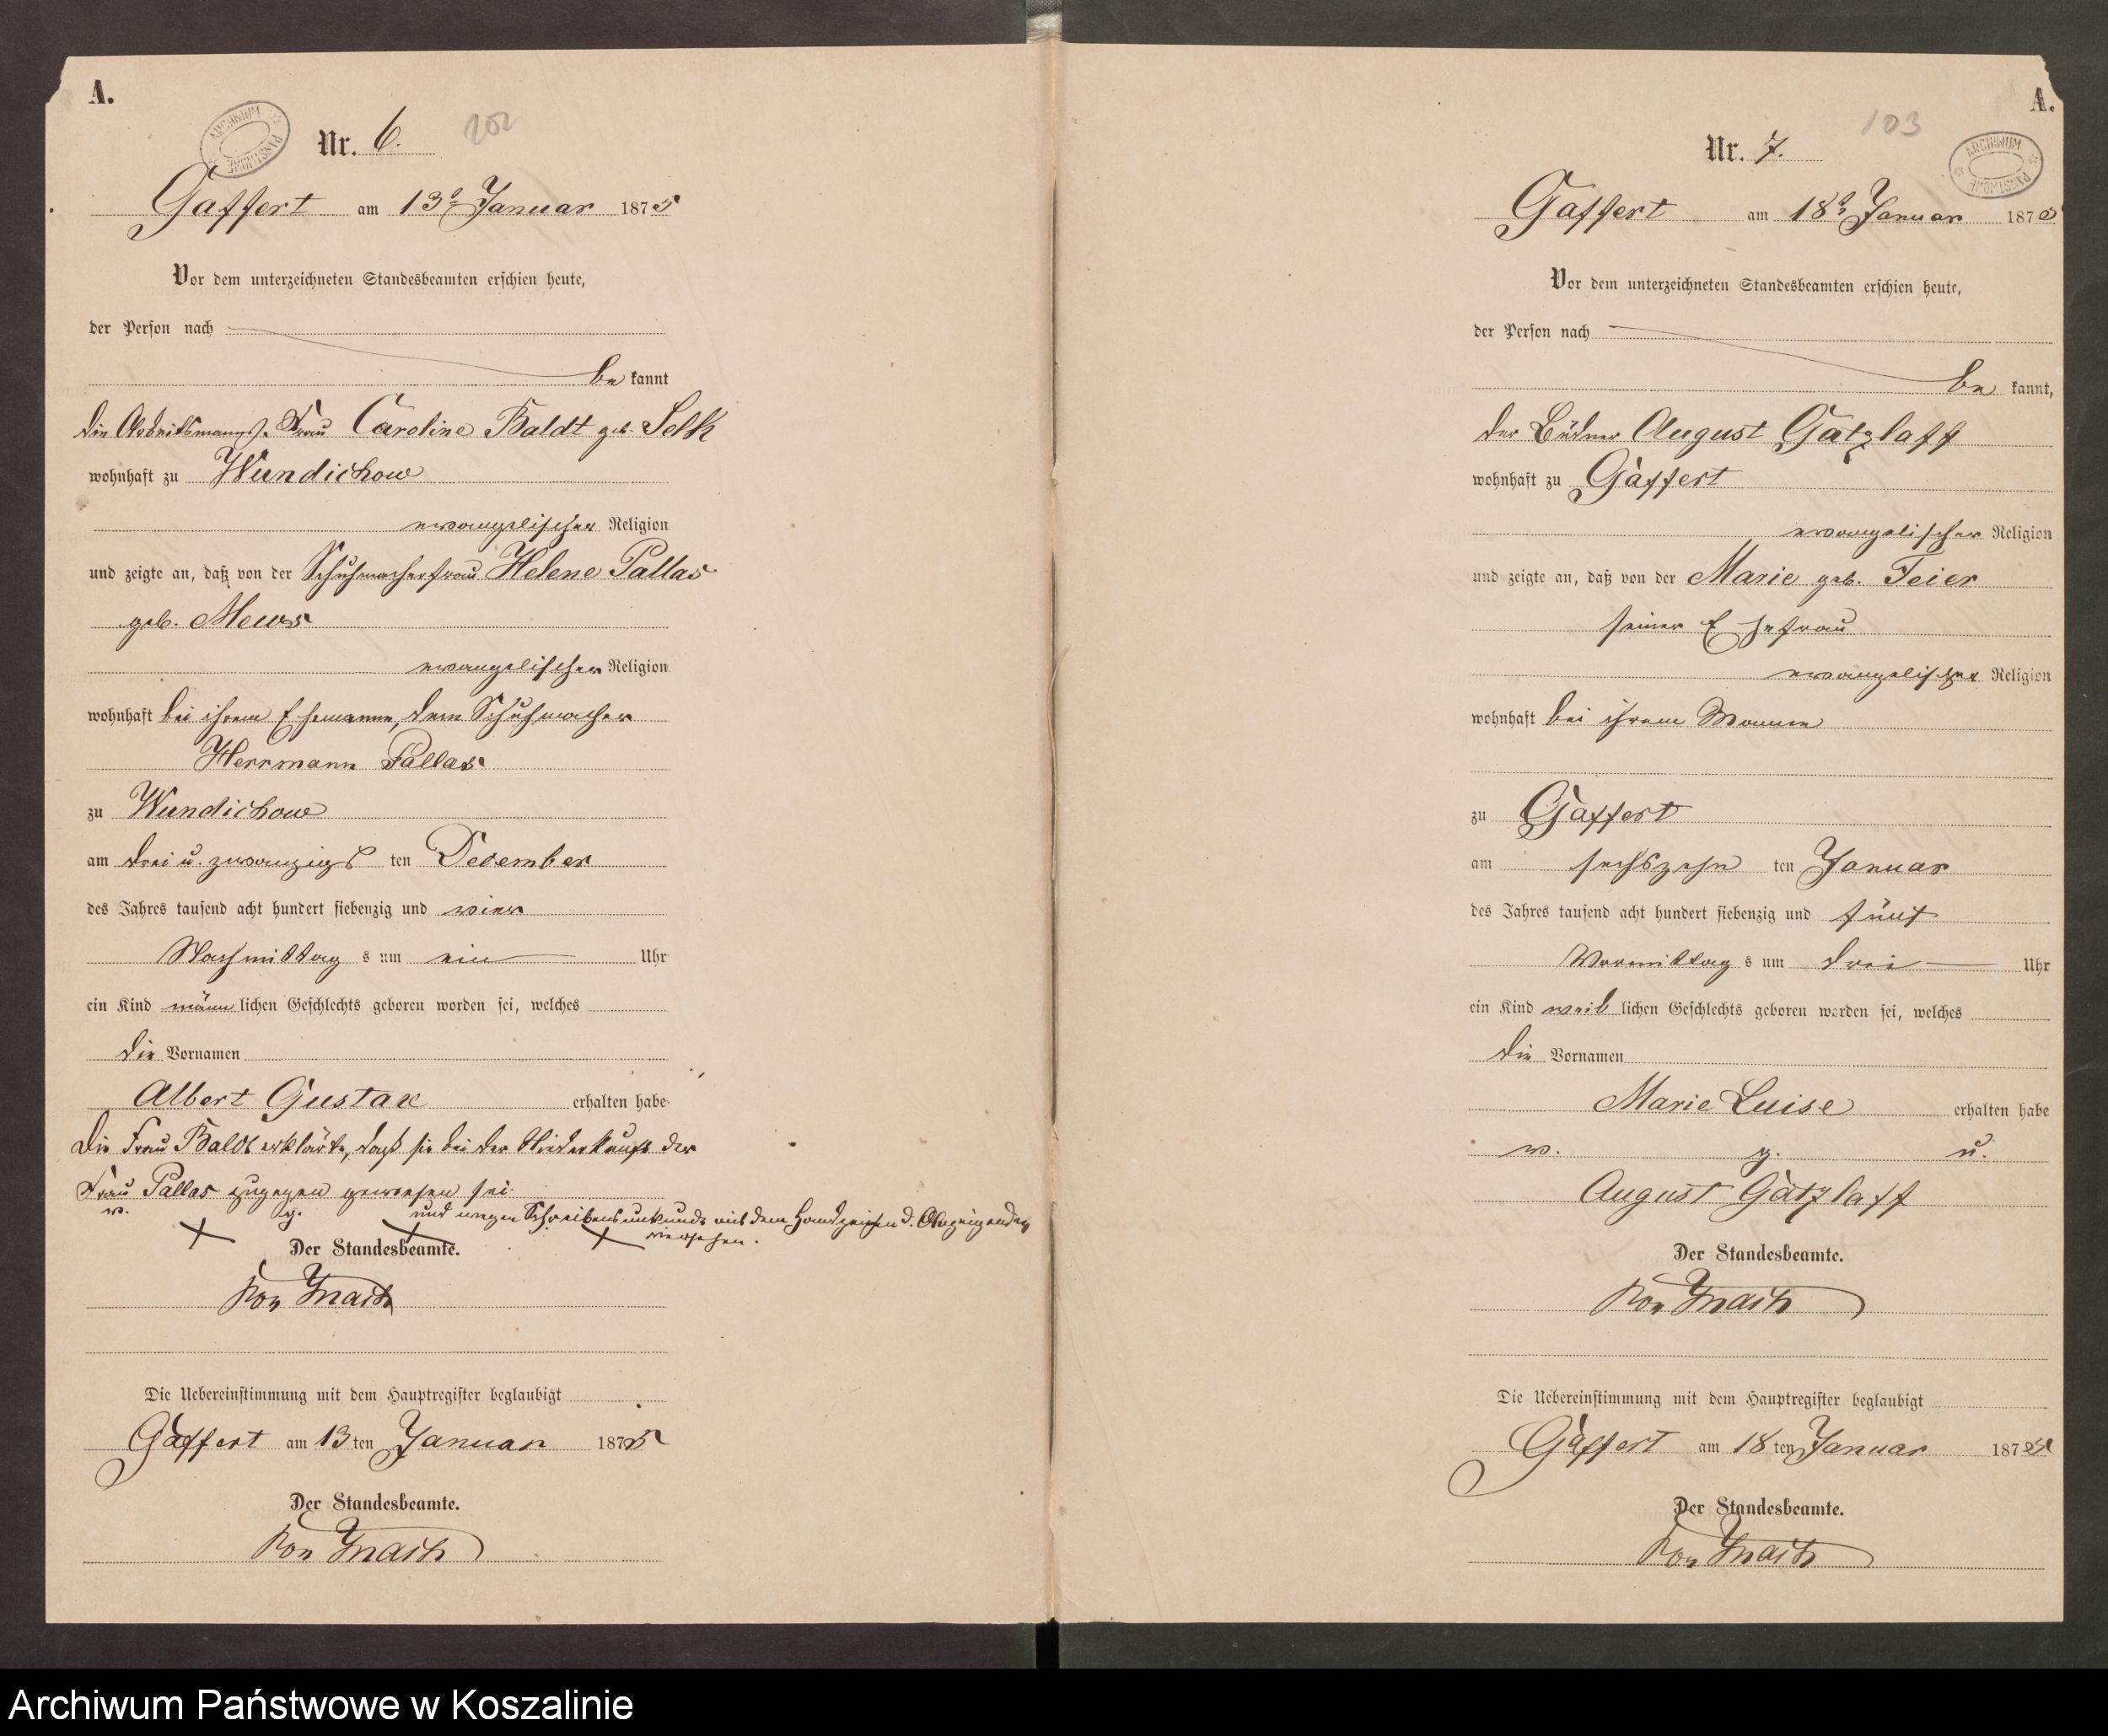 A.
ARCHIWUM PAŃSTWOWE
Nr. 6. 102
Gaffert am 13t Januar 1875
Vor dem unterzeichneten Standesbeamten erschien heute,
der Person nach
be kannt
die Arbeitsmanns Frau Caroline Baldt geb. Selk
wohnhaft zu Wundichow
evangelischer Religion
und zeigte an, daß von der Schuhmacherfrau Helene Pallas
geb. Mews
evangelischer Religion
wohnhaft bei ihrem Ehemanne, dem Schuhmacher
Herrmann Pallas
zu Wundichow
am drei u. zwanzigs ten December
des Jahres tausend acht hundert siebenzig und vier
Nachmittag s um ein Uhr
ein Kind männ lichen Geschlechts geboren worden sei, welches
die Vornamen
Albert Gustav erhalten habe
Die Frau Baldt erklärte, daß sie bei der Niederkunft der
Frau Pallas zugegen gewesen sei.
v. g. und wegen Schreibensunkunde mit dem Handzeichen d. Anzeigenden
versehen.
Der Standesbeamte.
Die Uebereinstimmung mit dem Hauptregister beglaubigt
Gaffert am 13 ten Januar 1875
Der Standesbeamte.
A.
103
ARCHIWUM PAŃSTWOWE
Nr. 7.
Gaffert am 18t Januar 1875
Vor dem unterzeichneten Standesbeamten erschien heute,
der Person nach
be kannt,
der Büdner August Gätzlaff
wohnhaft zu Gaffert
evangelischer Religion
und zeigte an, daß von der Marie geb. Feier
seiner Ehefrau
evangelischer Religion
wohnhaft bei ihrem Manne
zu Gaffert
am sechszehn ten Januar
des Jahres tausend acht hundert siebenzig und fünf
Vormittag s um drei Uhr
ein Kind weib lichen Geschlechts geboren worden sei, welches
die Vornamen
Marie Luise erhalten habe
v. g. u.
August Gätzlaff
Der Standesbeamte.
Die Uebereinstimmung mit dem Hauptregister beglaubigt
Gaffert am 18 ten Januar 1875
Der Standesbeamte.
Archiwum Państwowe w Koszalinie